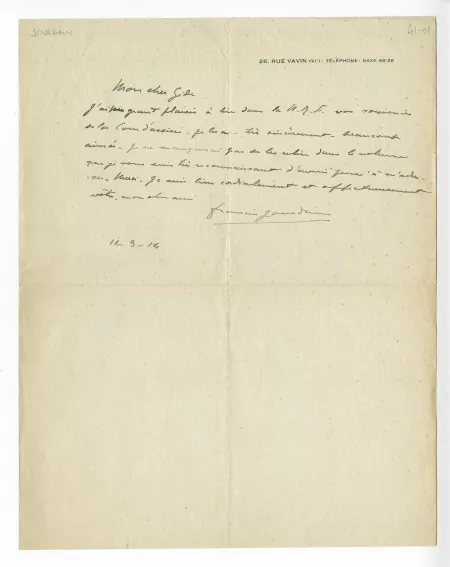 JOURDAIN
26, RUE VAVIN (VIᵉ) · TÉLÉPHONE : SAXE 69-28
Mon cher Gide
J'ai grand plaisir à lire dans la N.R.F. vos souvenirs
de la Cour d'assises. Je les ai très sincèrement beaucoup
aimés. Je ne manquerai pas de les relire dans le volume
que je vous suis très reconnaissant d'avoir pensé à m'adres-
ser. Merci. Je suis bien cordialement et affectueusement
vôtre, mon cher ami
Francis Jourdain